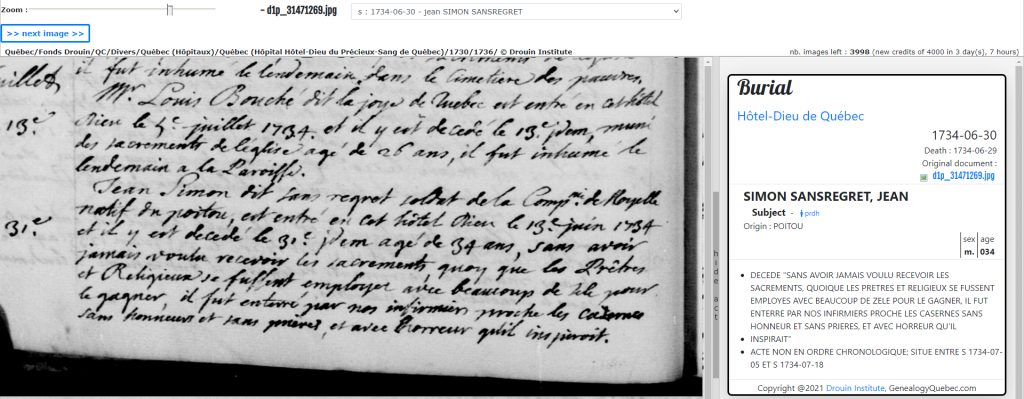 Zoom :
- d1p_31471269.jpg
s : 1734-06-30 - jean SIMON SANSREGRET
>> next image >>
Québec/Fonds Drouin/QC/Divers/Québec (Hôpitaux)/Québec (Hôpital Hôtel-Dieu du Précieux-Sang de Québec)/1730/1736/ © Drouin Institute
nb. images left : 3998 (new credits of 4000 in 3 day(s), 7 hours)
il fut inhumé le lendemain, dans le Cimetière des pauvres.
Mr. Louis Bouché dit la joye de Quebec est entré en cet hôtel
13e. Dieu le 5e. juillet 1734 et il y est decedé le 13e. jdem, muni
des sacrements de leglise agé de 26 ans, il fut inhumé le
lendemain a la Paroisse.
Jean Simon dit sans regret soldat de la Compnie. de
natif du poitou, est entré en cet hôtel Dieu le 13e. juin 1734
31e. et il y est decedé le 31e. jdem agé de 34 ans, sans avoir
jamais voulu recevoir les sacrements quoy que les Prêtres
et Religieux se fussent employez avec beaucoup de zele pour
le gagner, il fut enterré par nos infirmiers proche les casernes
sans honneurs et sans prieres, et avec horreur qu'il inspiroit.
hide act
Burial
Hôtel-Dieu de Québec
1734-06-30
Death : 1734-06-29
Original document :
d1p_31471269.jpg
SIMON SANSREGRET, JEAN
Subject - prdh
Origin : POITOU
sex age
m. 034
• DECEDE "SANS AVOIR JAMAIS VOULU RECEVOIR LES
SACREMENTS, QUOIQUE LES PRETRES ET RELIGIEUX SE FUSSENT
EMPLOYES AVEC BEAUCOUP DE ZELE POUR LE GAGNER, IL FUT
ENTERRE PAR NOS INFIRMIERS PROCHE LES CASERNES SANS
HONNEUR ET SANS PRIERES, ET AVEC HORREUR QU'IL
• INSPIRAIT"
• ACTE NON EN ORDRE CHRONOLOGIQUE; SITUE ENTRE S 1734-07-
05 ET S 1734-07-18
Copyright @2021 Drouin Institute, GenealogyQuebec.com